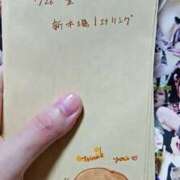 7/26 金
新木場 1stリング
Thank you♡